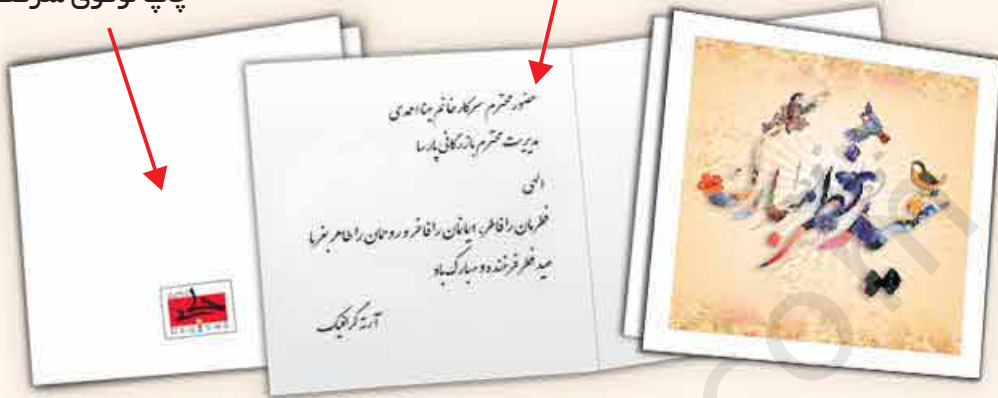 چاپ لوگوی
حضور محترم سرکار خانم مینا احمدی
مدیریت محترم بازرگانی پارسا
الهی
فطرمان را فاطر، ایمانمان را فاخر و روحمان را طاهر بفرما
عید فطر فرخنده و مبارک باد
آرته گرافیک
عید فطر مبارک
com